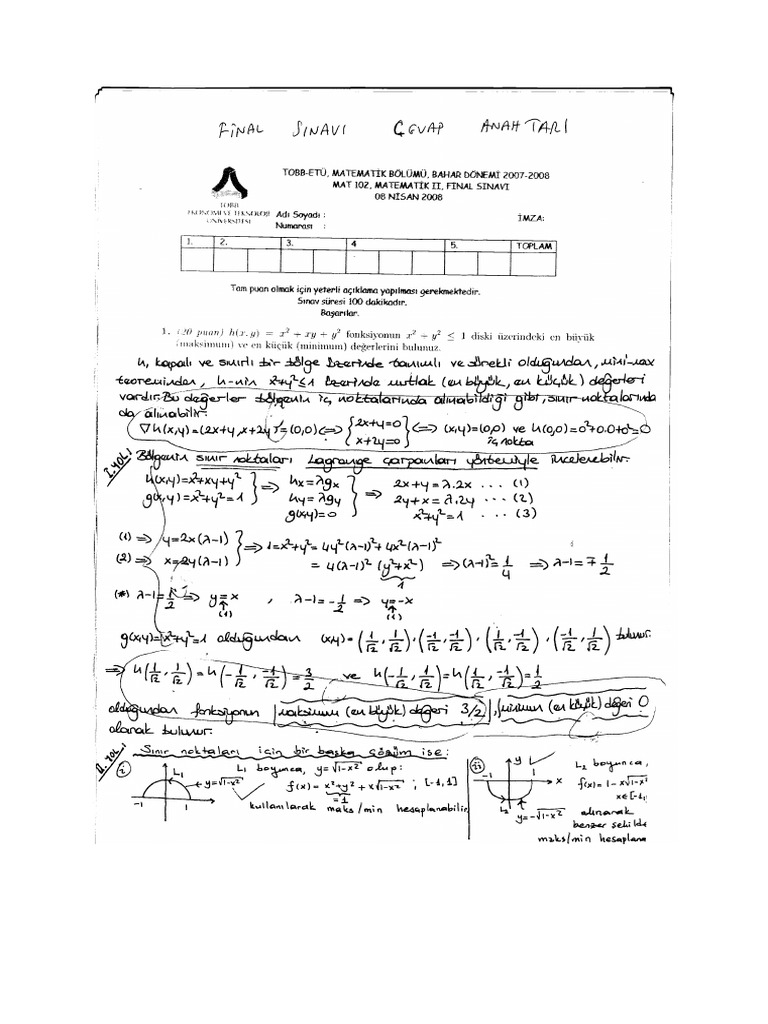 FİNAL SINAVI CEVAP ANAHTARI
TOBB-ETÜ, MATEMATİK BÖLÜMÜ, BAHAR DÖNEMİ 2007-2008
MAT 102, MATEMATİK II, FİNAL SINAVI
08 NİSAN 2008
TOBB
EKONOMİ VE TEKNOLOJİ
ÜNİVERSİTESİ
Adı Soyadı :
İMZA:
Numarası :
1. 2. 3. 4 5. TOPLAM
Tam puan almak için yeterli açıklama yapılması gerekmektedir.
Sınav süresi 100 dakikadır.
Başarılar.
1. (20 puan) h(x, y) = x² + xy + y² fonksiyonun x² + y² ≤ 1 diski üzerindeki en büyük
(maksimum) ve en küçük (minimum) değerlerini bulunuz.
h, kapalı ve sınırlı bir bölge üzerinde tanımlı ve sürekli olduğundan, mini-max
teoreminden, h-nin x²+y²≤1 üzerinde mutlak (en büyük, en küçük) değerleri
vardır. Bu değerler bölgenin iç noktalarında alınabildiği gibi, sınır noktalarında
da alınabilir.
∇h(x,y)=(2x+y, x+2y)=(0,0) <=> {2x+y=0 x+2y=0} <=> (x,y)=(0,0) ve h(0,0)=0²+0.0+0²=0
iç nokta
I.YOL: Bölgenin sınır noktaları Lagrange çarpanları yöntemiyle incelenebilir.
h(x,y)=x²+xy+y² } => hx=λgx => 2x+y=λ.2x ... (1)
g(x,y)=x²+y²=1 hy=λgy 2y+x=λ.2y ... (2)
g(x,y)=0 x²+y²=1 ... (3)
(1) => y=2x(λ-1) } => 1=x²+y²=4y²(λ-1)²+4x²(λ-1)²
(2) => x=2y(λ-1) =4(λ-1)² (y²+x²) => (λ-1)²=1/4 => λ-1=∓1/2
1
(*) λ-1=1/2 => y=x , λ-1=-1/2 => y=-x
(1) (1)
g(x,y)=x²+y²=1 olduğundan (x,y)=(1/√2, 1/√2), (-1/√2, -1/√2), (1/√2, -1/√2), (-1/√2, 1/√2) bulunur.
=> h(1/√2, 1/√2)=h(-1/√2, -1/√2)=3/2 ve h(-1/√2, 1/√2)=h(1/√2, -1/√2)=1/2
olduğundan fonksiyonun maksimum (en büyük) değeri 3/2, minimum (en küçük) değeri 0
olarak bulunur.
II.YOL: Sınır noktaları için bir başka çözüm ise:
(i) L₁ L₁ boyunca, y=√1-x² olup:
y=√1-x² f(x)=x²+y²+x√1-x² ; [-1,1]
=1
-1 1
kullanılarak maks/min hesaplanabilir
(ii) y L₂ boyunca,
-1 1 x f(x)=1-x√1-x²
x∈[-1,
L₂ y=-√1-x² alınarak
benzer şekilde
maks/min hesaplana